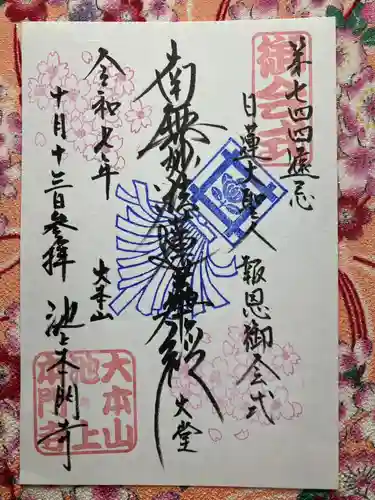 御会式
第七四四遠忌
日蓮大聖人
報恩御会式
南無妙法蓮華経
大堂
令和七年
十月十三日参拝
大本山
池上本門寺
大本山
池上
本門寺